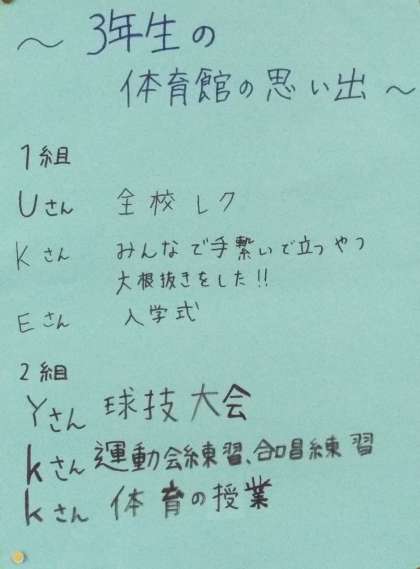 ～ 3年生の
体育館の思い出 ～
1組
Uさん 全校レク
Kさん みんなで手繋いで立つやつ
大根抜きをした!!
Eさん 入学式
2組
Yさん 球技大会
kさん 運動会練習、合唱練習
kさん 体育の授業